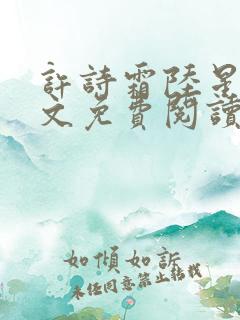 許詩霜陸星
文免費閱讀
如傾如訴
未經同意禁止轉載